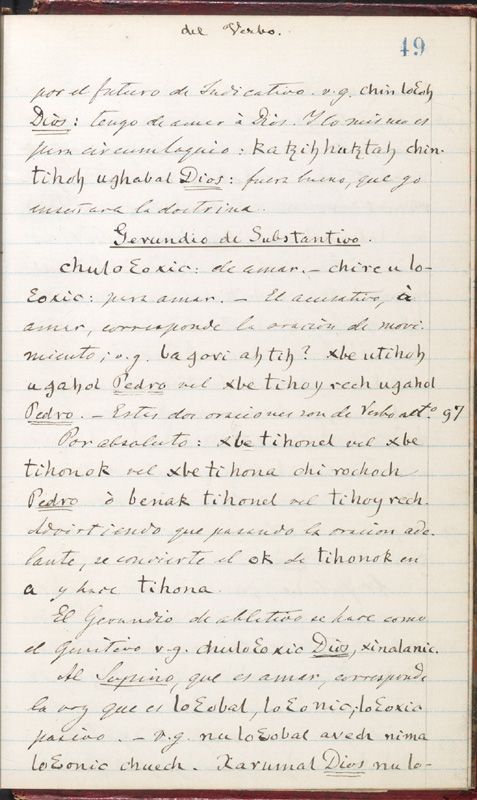 del Verbo.
49
por el futuro de Indicativo. v.g. chin loƐoh
Dios: tengo de amar à Dios. Y lo mismo es
para circumloquio: katzih hutztah chin-
tihoh ughabal Dios: fuera bueno, que yo
enseñara la doctrina.
Gerundio de Substantivo.
chuloƐoxic: de amar. - chirculo-
Ɛoxic: para amar. - El acusativo, à
amar, corresponde la oración de movi-
miento; v.g. ba govi ah tih? xbe utihoh
ugahol Pedro vel xbe tihoy rech ugahol
Pedro. - Estas dos oraciones son de Verbo actº.
Por absoluto: xbe tihonel vel xbe
tihonok vel xbe tihona chi rochoch
Pedro ò benak tihonel vel tihoy rech.
Advirtiendo que pasando la oracion ade-
lante, se convierte el ok de tihonok en
a y hace tihona.
El Gerundio de ablativo se hace como
el genitivo v.g. chuloƐoxic Dios, xinalanic.
Al Supino, que es amar, corresponde
la voz que es loƐobal, loƐonic; loƐoxic
pasivo. - v.g. nu loƐobal avech nima
loƐonic chuech. Xarumal Dios nu lo-